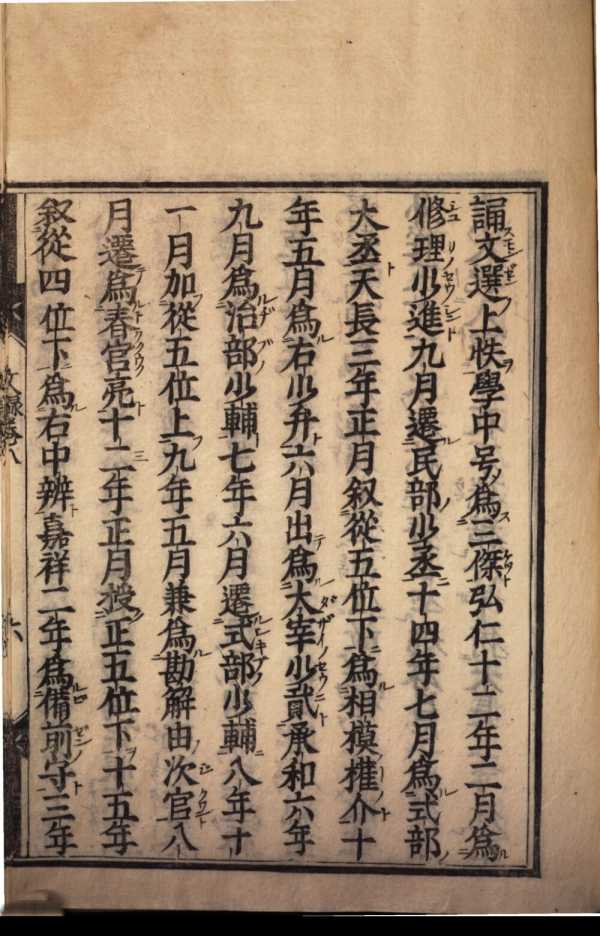 誦文選上帙學中号爲三傑弘仁十二年二月爲
修理少進九月遷民部少丞十四年七月爲式部
大丞天長三年正月叙從五位下爲相模權介十
年五月爲右少弁六月出爲太宰少貳承和六年
九月爲治部少輔七年六月遷式部少輔八年十
一月加從五位上九年五月兼爲勘解由次官八
月遷爲春宮亮十二年正月授正五位下十五年
叙從四位下爲右中辨嘉祥二年爲備前守三年
文錄卷八
六